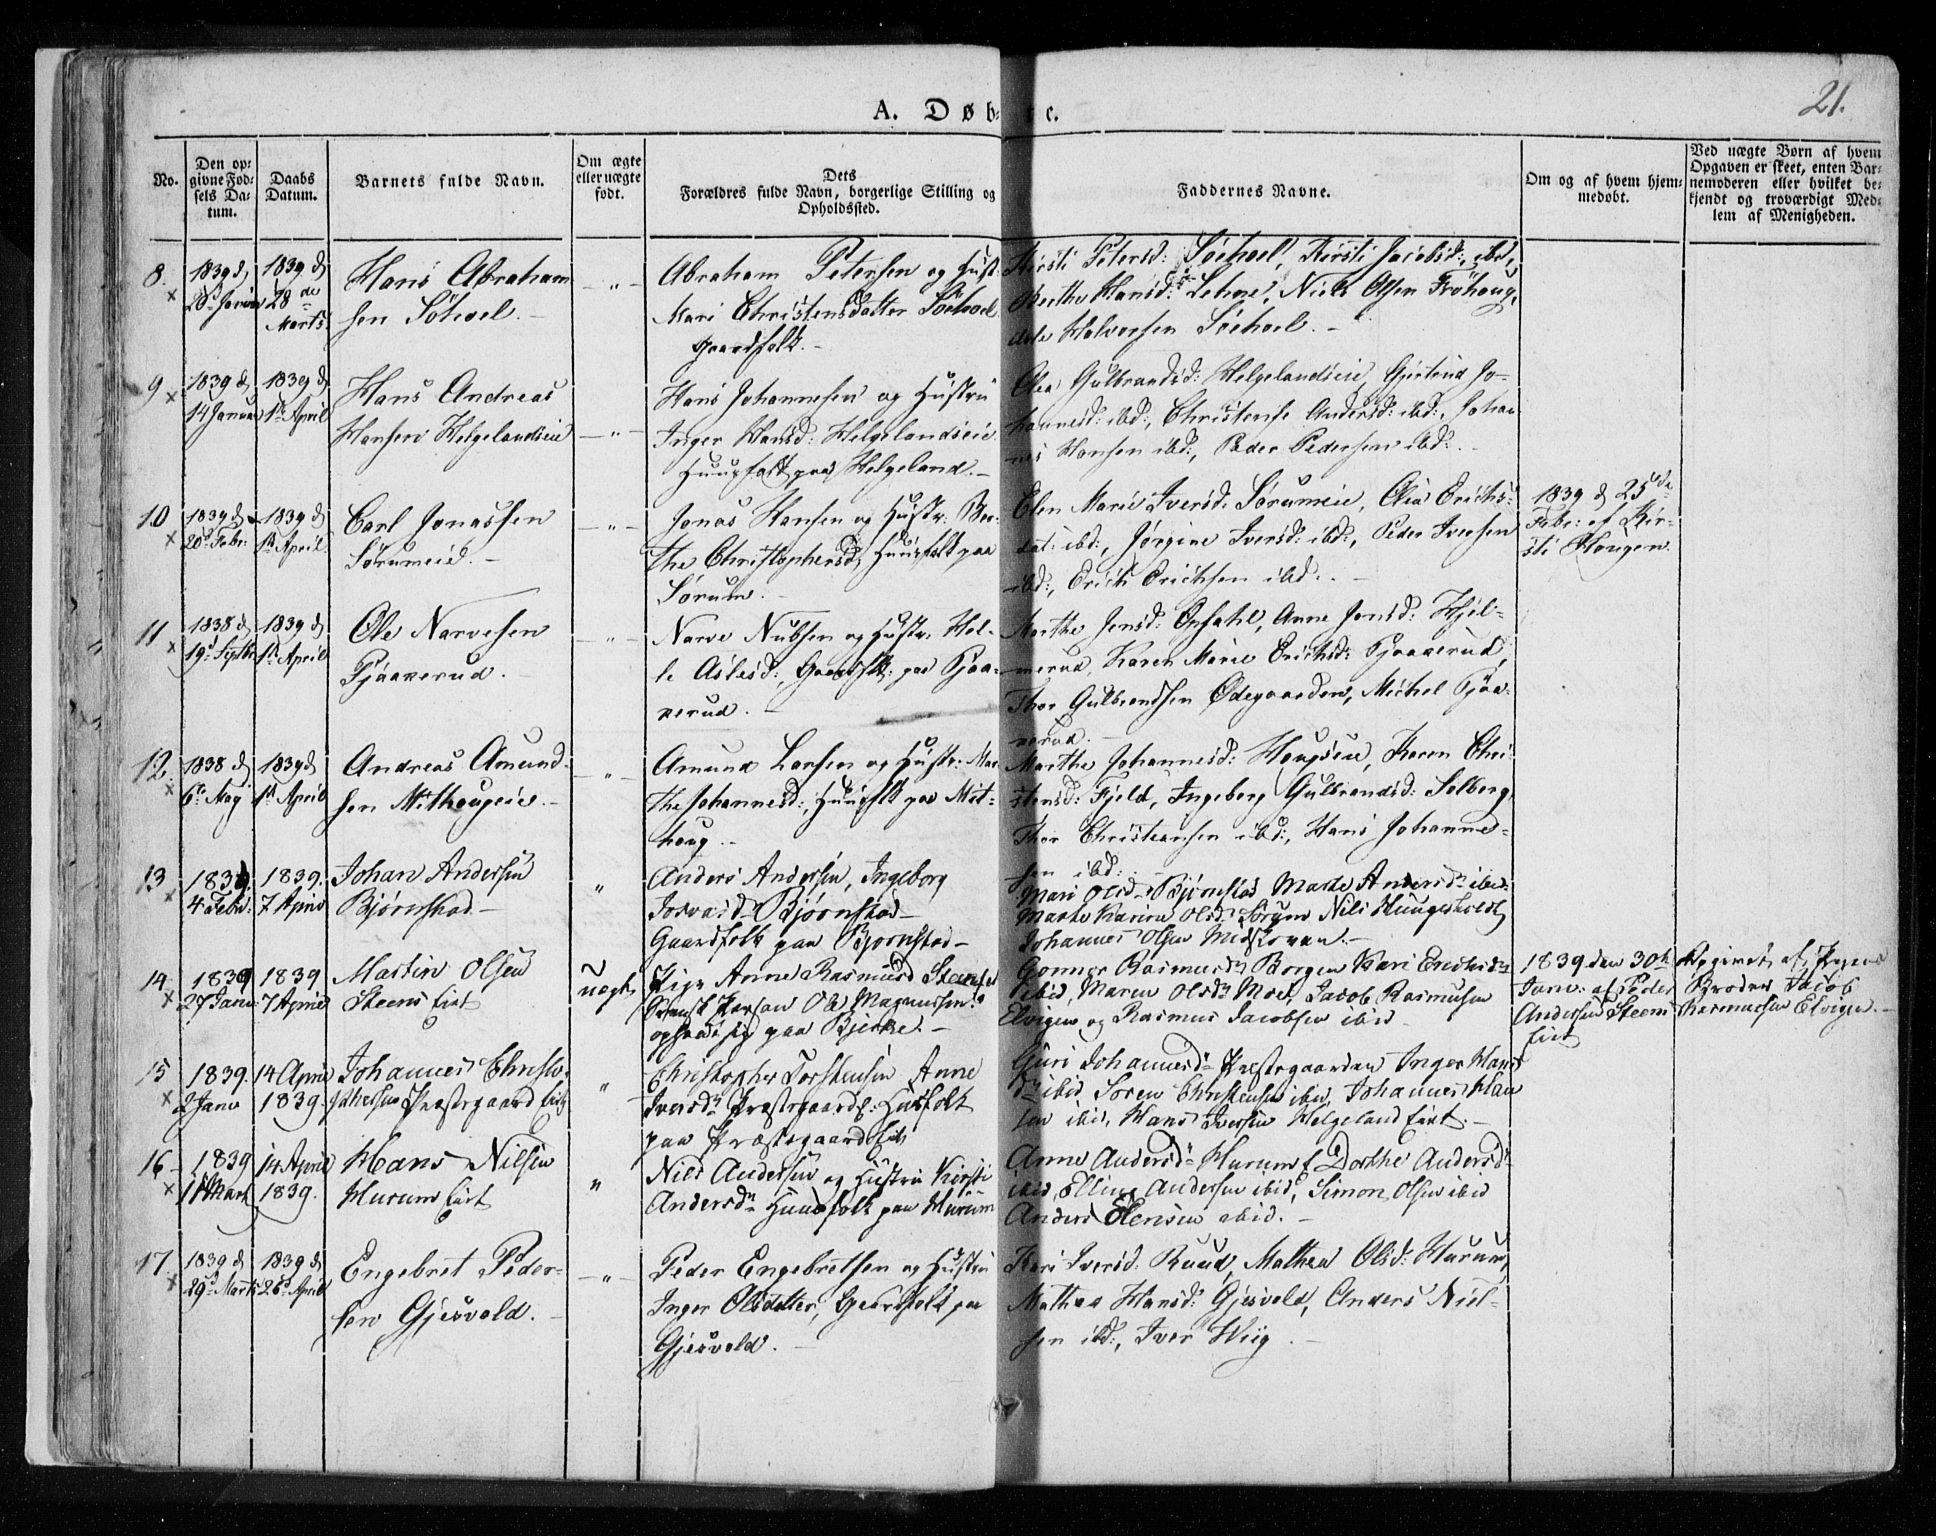 21.
A. Døb- te.
No.
Den op-
givne Fød-
sels Da-
tum.
Daabs
Datum.
Barnets fulde Navn.
Om ægte
eller uægte
født.
Dets
Forældres fulde Navn, borgerlige Stilling og
Opholdssted.
Faddernes Navne.
Om og af hvem hjem-
medøbt.
Ved uægte Børn af hvem
Opgaven er skeet, enten Bar-
nemoderen eller hvilket be-
kjendt og troværdigt Med-
lem af Menigheden.
8.
1839 d
1839 d
28 de
Marts
Hans Abraham
sen Söhoel.
Abraham Petersen og Hust:
Mari Christensdatter Söehoel
Gaardfolk.
Kirsti Petersd: Söehoel, Kirsti Jacobsd: ibd,
Berthe Hansd: Lehne, Niels Olsen Fröhoug,
Halvorsen Söehoel.
9
1839 d
14 Januar
1839 d
1st April
Hans Andreas
Hansen Helgelandseie
Hans Johannesen og Hustru
Inger Hansd: Helgelandseie
Huusfolk paa Helgeland.
Olea Gulbrandsd: Helgelandseie, Gjertrud Jo-
hannesd: ibd:, Christense Andersd: ibd:, Johan
nes Hansen ibd:, Peder Pedersen ibd:
10
1839 d
20 Febr:
1839 d
1st April
Carl Jonassen
Sørumeie.
Jonas Hansen og Hustr: Ber-
the Christophersd, Huusfolk paa
Sørum.
Elen Marie Iversd: Sørumeie, Olea Erichs-
dat: ibd:, Jørgine Iversd: ibd:, Peder Iversen
ibd:, Erich Erichsen ibd:.
1839 d 25de
Febr: af Kir-
sti Hougen.
11
1838 d
19 Septbr
1839 d
1st April
Ole Narvesen
Pjaakerud.
Narve Nubsen og Hustr: Hel-
le Aslesd:, Gaardfolk: paa Pjaa-
kerud.
Marthe Jensd: Opsahl, Anne Jonsd: Hjel-
merud, Karen Marie Erichsd: Pjaakerud,
Thor Gulbrandsen Ødegaarden, Michel Pjaa-
kerud.
12.
1838 d
6te Maj
1839 d
1st April
Andreas Amund-
sen Mithougeie.
Amund Larsen og Hustr: Mar
the Johannesd:, Huusfolk paa Mit-
houg.
Marthe Johannesd: Hougseie, Karen Chri-
stensd: Fjeld, Ingeborg Gulbrandsd: Solberg,
Thor Christiansen ibd:, Hans Johanne-
sen ibd:.
13
1839.
4 Febr:
1839.
7 April
Johan Andersen
Bjørnstad
"
Anders Andersen, Ingeborg
Bjørnstad
Gaardfolk paa Bjørnstad
Mari Olsdr Bjørnstad Marte Andersdr ibid
Marte Karine Olsd: Sørum Nils Haugesholdt
Johannes Olsen Midskovan.
14.
1839
27 Janr
1839
7 April
Martin Olsen
Steens Eiet
uægte
Pige Anne Rasmusd Steenset
Svensk Person Ole Magnussen
opholdt sig paa Bjerke.
Gonner Rasmusdr Borgen Kari Endresdr
ibid, Maren Olsdr Moe, Jacob Rasmusen
Elvigen og Rasmus Jacobsen ibid
1839 den 30te
Janr: af Peder
Andersen Steens
Eiet
Opgivet af Pigens
Broder Jacob
Rasmussen Elvigen.
15
1839.
2 Janr
14 April
1839.
Johannes Christo-
phersen Præstegaard Eiet
"
Christopher Torstensen Anne
Iversdr Præstegaards: Husfolk
paa Præstegaard Eiet
Guri Johannesdr Præstegaarden Inger Hans
dr ibid, Soren Christensen ibid, Johannes Han
sen ibid, Hans Iversen Helgeland Eiet.
16
1839
11 Mart
14 April
1839.
Hans Nilsen
Hurum Eiet
"
Nils Andersen og Hustru Kirsti
Andersdr Huusfolk paa Hurum
Anne Andersdr Hurum E Dorthe Andersdr
ibid, Elling Andersen ibid, Simon Olsen ibid
Anders Hensen ibid.
17.
1839 d
29 Marts
1839 d
28 April
Engebret Peder-
sen Gjesvold.
Peder Engebretsen og Hustru
Inger Olsdatter, Gaardfolk paa
Gjesvold.
Kari Iversd: Ruud, Mathea Olsd: Hurum,
Mathea Hansd: Gjesvold, Anders Niel-
sen ibd:, Iver Wiig.